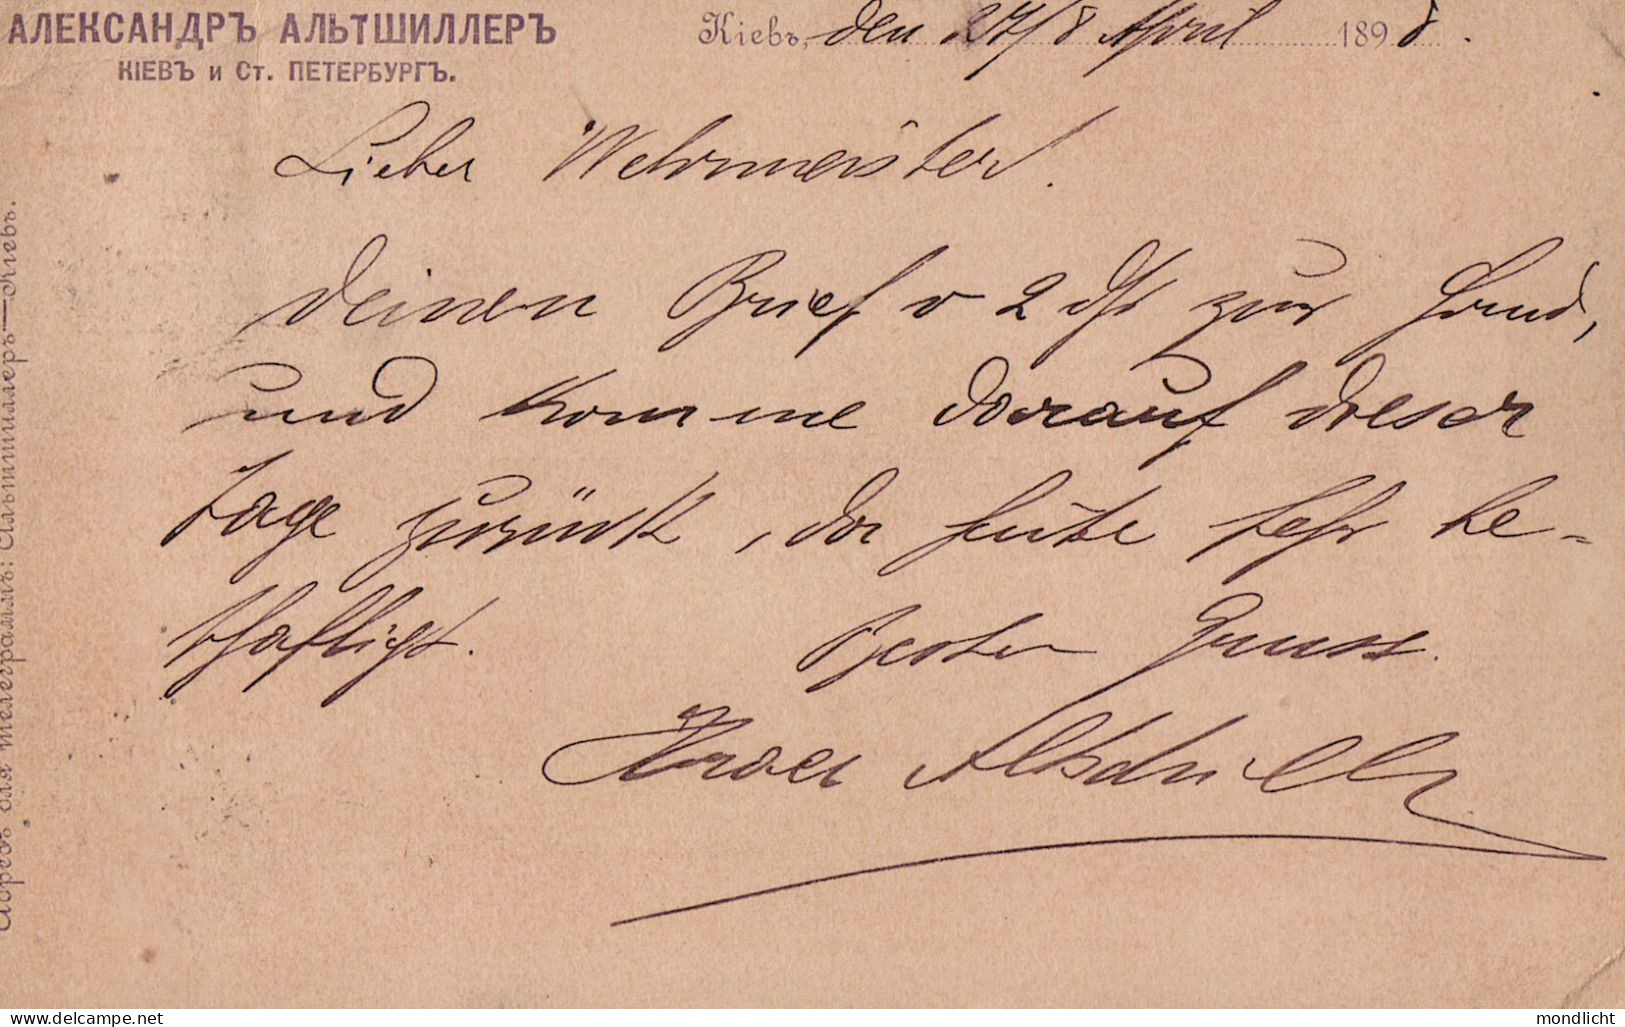 АЛЕКСАНДРЪ АЛЬТШИЛЛЕРЪ
КІЕВЪ и Ст. ПЕТЕРБУРГЪ.
Кіевъ, den 27/8 April 1898.
Lieber Wehrmeister!
Deinen Brief v 2 zur Hand,
und komme darauf dieser
Tage zurück, da heute sehr be-
schäftigt. Bester Gruss
Altschiller
Адресъ для телеграммъ: Альтшиллеръ—Кіевъ.
delcampe.net
mondlicht